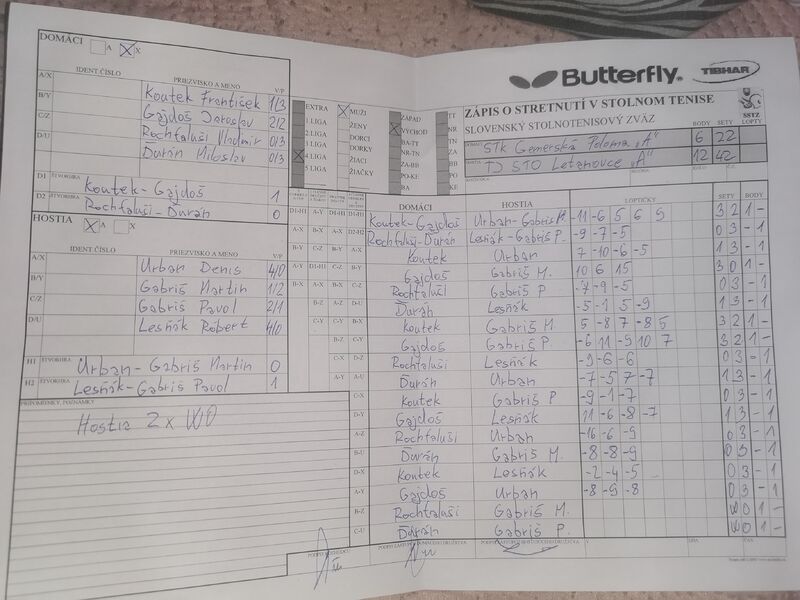 DOMÁCI A X
IDENT.ČÍSLO PRIEZVISKO A MENO V/P
A/X Koutek František 1/3
B/Y Gajdoš Jaroslav 2/2
C/Z Rochfaluši Vladimír 0/3
D/U Ďurán Miloslav 0/3
D1 ŠTVORHRA Koutek-Gajdoš 1
D2 ŠTVORHRA Rochfaluši-Ďurán 0
HOSTIA A X
IDENT.ČÍSLO PRIEZVISKO A MENO V/P
A/X Urban Denis 4/0
B/Y Gabriš Martin 1/2
C/Z Gabriš Pavol 2/1
D/U Lesňák Róbert 4/0
H1 ŠTVORHRA Urban-Gabriš Martin 0
H2 ŠTVORHRA Lesňák-Gabriš Pavol 1
PRIPOMIENKY, POZNÁMKY
Hostia 2x WO
EXTRA MUŽI ZÁPAD TT
1 LIGA ŽENY VÝCHOD NR
2 LIGA DORCI BA-TT TN
3 LIGA DORKY NR-TN ZA
4 LIGA ŽIACI ZA-BB BB
5 LIGA ŽIAČKY PO-KE PO
BA KE
Butterfly TIBHAR
ZÁPIS O STRETNUTÍ V STOLNOM TENISE
SLOVENSKÝ STOLNOTENISOVÝ ZVÄZ SSTZ
BODY SETY LOPTY
STK Gemerská Poloma "A" 6 22
TJ STO Letanovce "A" 12 42
DOMÁCI HOSTIA LOPTIČKY SETY BODY
Koutek-Gajdoš Urban-Gabriš M. -11 -6 5 6 9 3 2 1 -
Rochfaluši-Ďurán Lesňák-Gabriš P. -9 -7 -5 0 3 - 1
Koutek Urban 7 -10 -6 -5 1 3 - 1
Gajdoš Gabriš M. 10 6 15 3 0 1 -
Rochfaluši Gabriš P -7 -9 -5 0 3 - 1
Ďurán Lesňák -5 -1 5 -9 1 3 - 1
Koutek Gabriš M. 5 -8 7 -8 5 3 2 1 -
Gajdoš Gabriš P. -6 11 -9 10 7 3 2 1 -
Rochfaluši Lesňák -9 -6 -6 0 3 - 1
Ďurán Urban -7 -5 7 -7 1 3 - 1
Koutek Gabriš P -9 -1 -7 0 3 - 1
Gajdoš Lesňák 11 -6 -8 -7 1 3 - 1
Rochfaluši Urban -16 -6 -9 0 3 - 1
Ďurán Gabriš M. -8 -8 -9 0 3 - 1
Koutek Lesňák -2 -4 -5 0 3 - 1
Gajdoš Urban -8 -9 -8 0 3 - 1
Rochfaluši Gabriš M. WO 1 -
Ďurán Gabriš P. WO 1 -